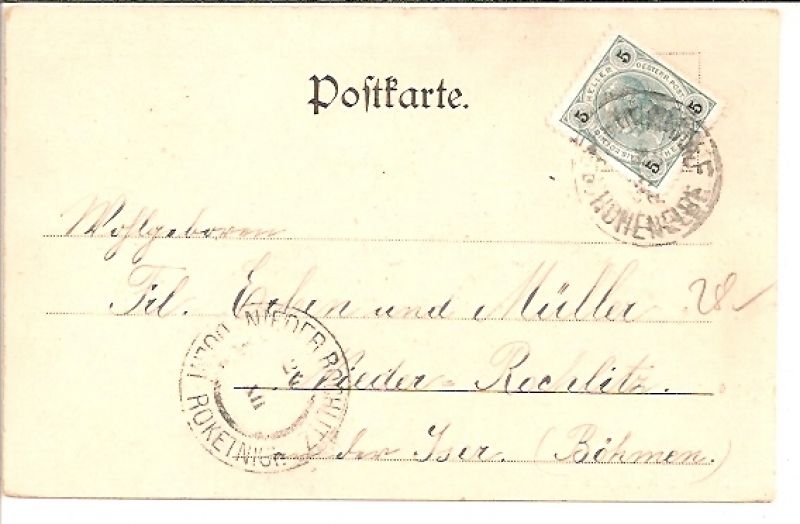 Postkarte.
5 5
HELLER OESTERR. POST
5 5
HOHENELBE
Wohlgeboren
Frl. Erben und Müller
Nieder-Rochlitz
an der Iser. (Böhmen.)
NIEDER ROCHLITZ
ROKETNICE
XII